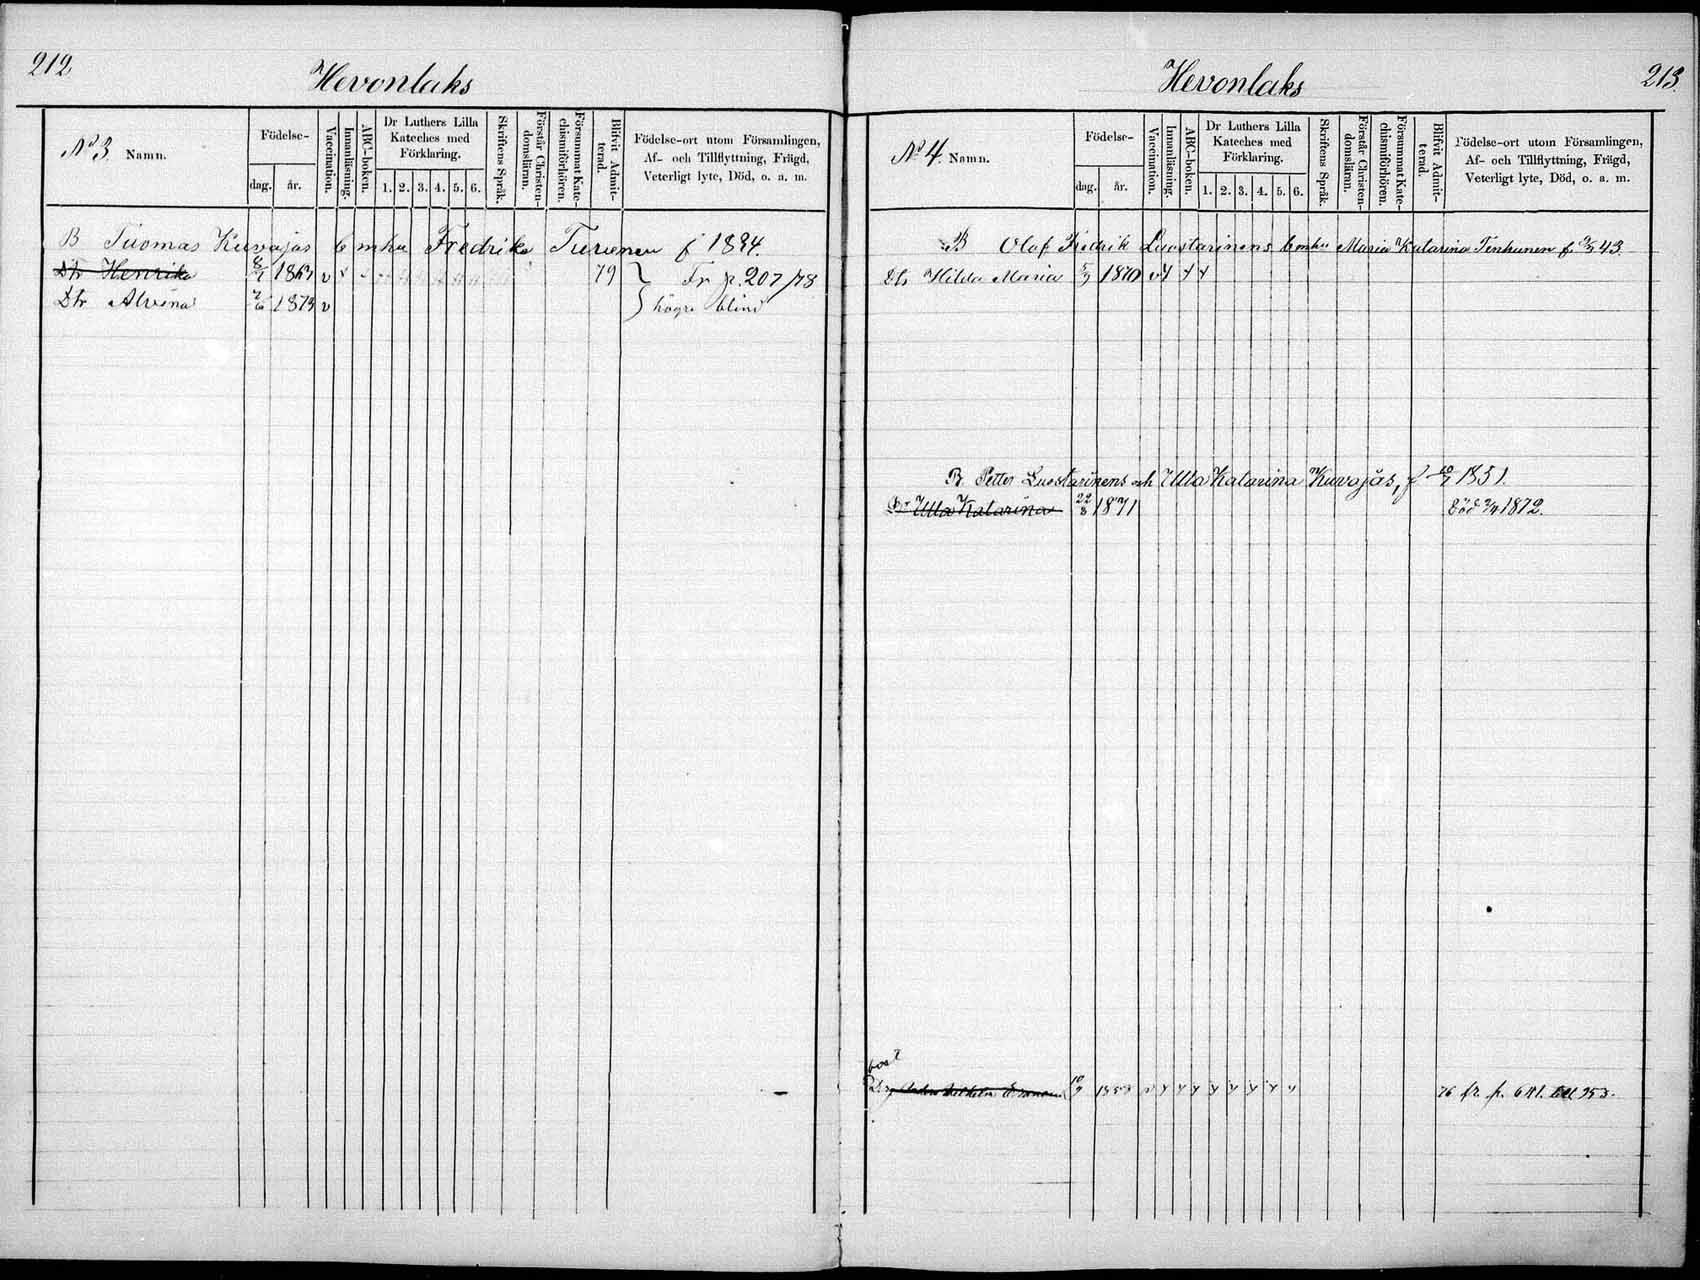 212
Hevonlaks
N:o 3. Namn.
Födelse-
dag. år.
Vaccination.
Innanläsning.
ABC-boken.
Dr Luthers Lilla
Kateches med
Förklaring.
1. 2. 3. 4. 5. 6.
Skriftens Språk.
Förstår Christen-
domsläran.
Försummat Kate-
chismiförhören.
Blifvit Admit-
terad.
Födelse-ort utom Församlingen,
Af- och Tillflyttning, Frägd,
Veterligt lyte, Död, o. a. m.
B Tuomas Kuvajas enka Fredrika Turunen f
Dtr Henrika 1863 v 79 Fr p. 207/78
Dtr Alvina 1873 v högra blind
213.
Hevonlaks
N:o 4. Namn.
Födelse-
dag. år.
Vaccination.
Innanläsning.
ABC-boken.
Dr Luthers Lilla
Kateches med
Förklaring.
1. 2. 3. 4. 5. 6.
Skriftens Språk.
Förstår Christen-
domsläran.
Försummat Kate-
chismiförhören.
Blifvit Admit-
terad.
Födelse-ort utom Församlingen,
Af- och Tillflyttning, Frägd,
Veterligt lyte, Död, o. a. m.
B Olof Fredrik Luostarinens enka Maria Katarina Tenhunen f 43.
Dtr Hilda Maria 5/9 1870 v
B. Petter Luostarinens och Ulla Katarina Kuvajas, f 1851.
Dr Ulla Katarina 22/8 1871 död 1872.
76 fr. p. 681. till 353.